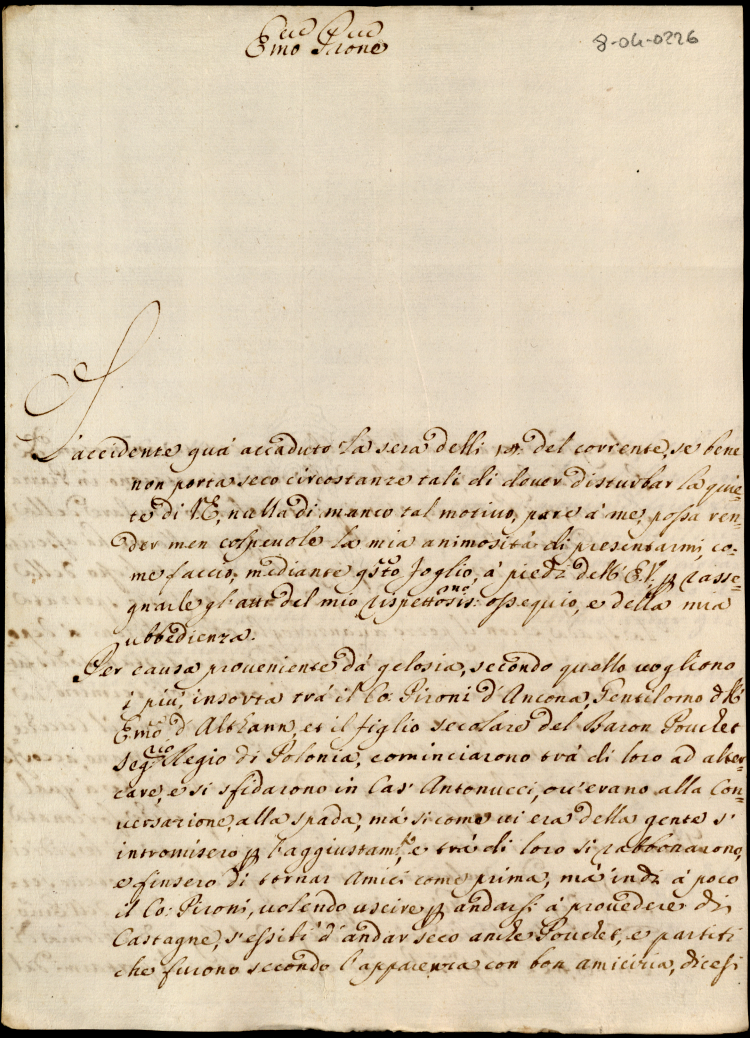 8-04-0226
Emo Prone
L'accidente quà accaduto la sera delli 14. del corrente, se bene
non porta seco circostanze tali di dover disturbar la quie-
te di V.E, nulla di manco tal motivo, pare à me, possa ren-
der men colpevole la mia animosità di presentarmi, co-
me faccio, mediante qsto foglio, à piedi dell' E.V. p rasse-
gnarle gl'atti del mio rispettosissmo: ossequio, e della mia
ubbedienza.
Per causa proveniente dà gelosia, secondo quello vogliono
i più, insorta trà il Co: Pironi d'Ancona, Gentilomo dell'
Emo d'Althann, et il figlio secolare del Baron Pouclet
Segrio Regio di Polonia, cominciarono trà di loro ad alter-
care, e si sfidarono in Cas' Antonucci, ov'erano alla Con-
versazione, alla spada, mà sicome vi era della gente s'
intromisero p l'aggiustamto, e trà di loro si rabbonarono,
e finsero di tornar Amici come prima, mà indi à poco
il Co: Pironi, volendo uscire p andarsi à provedere di
Castagne, s'essibì d'andar seco anche Pouclet, e partiti
che furono secondo l'apparenza con bon amicizia, dicesi